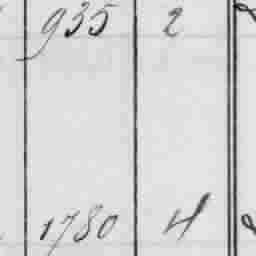 935 2
1780 4